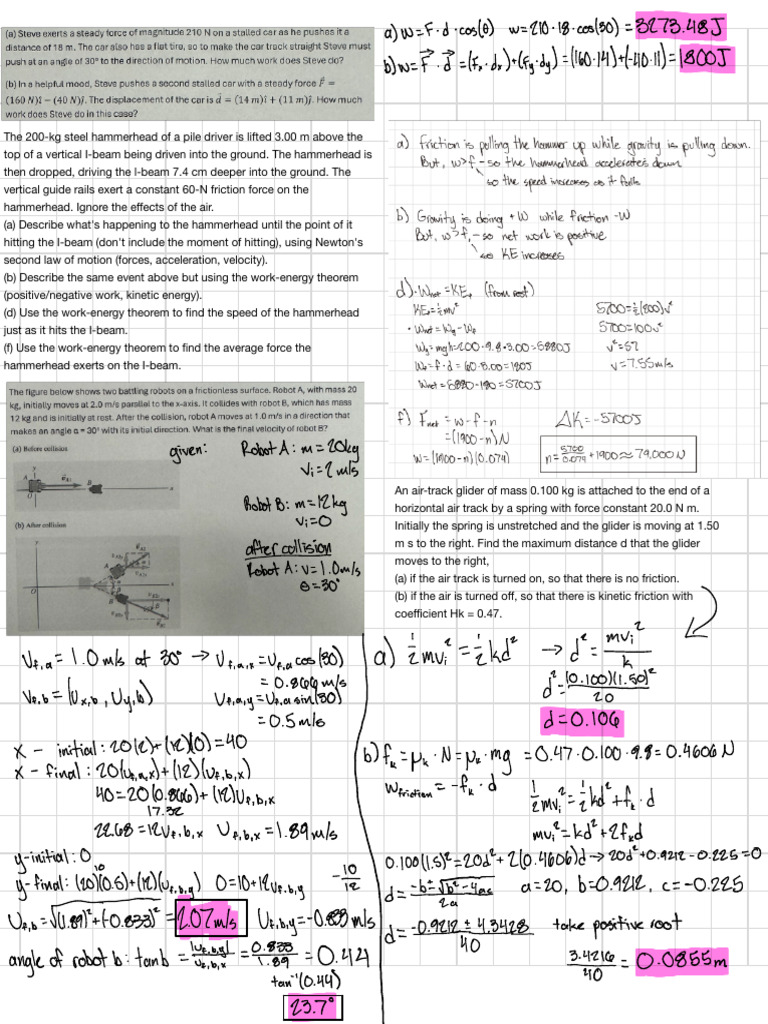 (a) Steve exerts a steady force of magnitude 210 N on a stalled car as he pushes it a
distance of 18 m. The car also has a flat tire, so to make the car track straight Steve must
push at an angle of 30° to the direction of motion. How much work does Steve do?
(b) In a helpful mood, Steve pushes a second stalled car with a steady force F⃗ =
(160 N)î − (40 N)ĵ. The displacement of the car is d⃗ = (14 m)î + (11 m)ĵ. How much
work does Steve do in this case?
a) W = F · d · cos(θ) W = 210 · 18 · cos(30) = 3273.48J
b) W = F⃗ · d⃗ = (Fx · dx) + (Fy · dy) = (160·14) + (-40·11) = 1800J
The 200-kg steel hammerhead of a pile driver is lifted 3.00 m above the
top of a vertical I-beam being driven into the ground. The hammerhead is
then dropped, driving the I-beam 7.4 cm deeper into the ground. The
vertical guide rails exert a constant 60-N friction force on the
hammerhead. Ignore the effects of the air.
(a) Describe what's happening to the hammerhead until the point of it
hitting the I-beam (don't include the moment of hitting), using Newton's
second law of motion (forces, acceleration, velocity).
(b) Describe the same event above but using the work-energy theorem
(positive/negative work, kinetic energy).
(d) Use the work-energy theorem to find the speed of the hammerhead
just as it hits the I-beam.
(f) Use the work-energy theorem to find the average force the
hammerhead exerts on the I-beam.
a) Friction is pulling the hammer up while gravity is pulling down.
But, w>f - so the hammerhead accelerates down
so the speed increases as it falls
b) Gravity is doing +W while friction -W
But, w>f, - so net work is positive
KE increases
d) · Wnet = KEf (from rest)
KEf = ½mv²
· Wnet = Wg - Wf
Wg = mgh = 200 · 9.8 · 3.00 = 5880J
Wf = f · d = 60 · 3.00 = 180J
Wnet = 5880 - 180 = 5700J
5700 = ½(200)v²
5700 = 100v²
v² = 57
v = 7.55m/s
f) Fnet = w - f - n
= (1900 - n)N
W = (1900 - n)(0.074)
ΔK = -5700J
n = 5700/0.074 + 1900 ≈ 79,000N
The figure below shows two battling robots on a frictionless surface. Robot A, with mass 20
kg, initially moves at 2.0 m/s parallel to the x-axis. It collides with robot B, which has mass
12 kg and is initially at rest. After the collision, robot A moves at 1.0 m/s in a direction that
makes an angle α = 30° with its initial direction. What is the final velocity of robot B?
(a) Before collision
(b) After collision
given: Robot A: m = 20kg
vi = 2 m/s
Robot B: m = 12 kg
vi = 0
after collision
Robot A: v = 1.0m/s
θ = 30°
An air-track glider of mass 0.100 kg is attached to the end of a
horizontal air track by a spring with force constant 20.0 N m.
Initially the spring is unstretched and the glider is moving at 1.50
m s to the right. Find the maximum distance d that the glider
moves to the right,
(a) if the air track is turned on, so that there is no friction.
(b) if the air is turned off, so that there is kinetic friction with
coefficient Hk = 0.47.
Vf,a = 1.0 m/s at 30° → Vf,a,x = Vf,a cos(30)
= 0.866 m/s
Vf,b = (Ux,b , Uy,b) Vf,a,y = Vf,a sin(30)
= 0.5 m/s
x - initial: 20(2) + (12)(0) = 40
x - final: 20(Vf,a,x) + (12)(Vf,b,x)
40 = 20(0.866) + (12)Vf,b,x
17.32
22.68 = 12Vf,b,x Vf,b,x = 1.89 m/s
y-initial: 0
10
y-final: (20)(0.5) + (12)(Vf,b,y) 0 = 10 + 12Vf,b,y -10/12
Vf,b = √(1.89)² + (-0.833)² = 2.07 m/s Vf,b,y = -0.833 m/s
angle of robot b: tanb = |Vf,b,y|/Vf,b,x = 0.833/1.89 = 0.44
tan⁻¹(0.44)
23.7°
a) ½mvi² = ½kd² → d² = mvi²/k
d² = (0.100)(1.50)²/20
d = 0.106
b) fk = μk · N = μk · mg = 0.47 · 0.100 · 9.8 = 0.4606 N
Wfriction = -fk · d
½mvi² = ½kd² + fk · d
mvi² = kd² + 2fkd
0.100(1.5)² = 20d² + 2(0.4606)d → 20d² + 0.9212 - 0.225 = 0
d = -b ± √b² - 4ac / 2a a = 20, b = 0.9212, c = -0.225
d = -0.9212 ± 4.3428 / 40 take positive root
3.4216/40 = 0.0855m